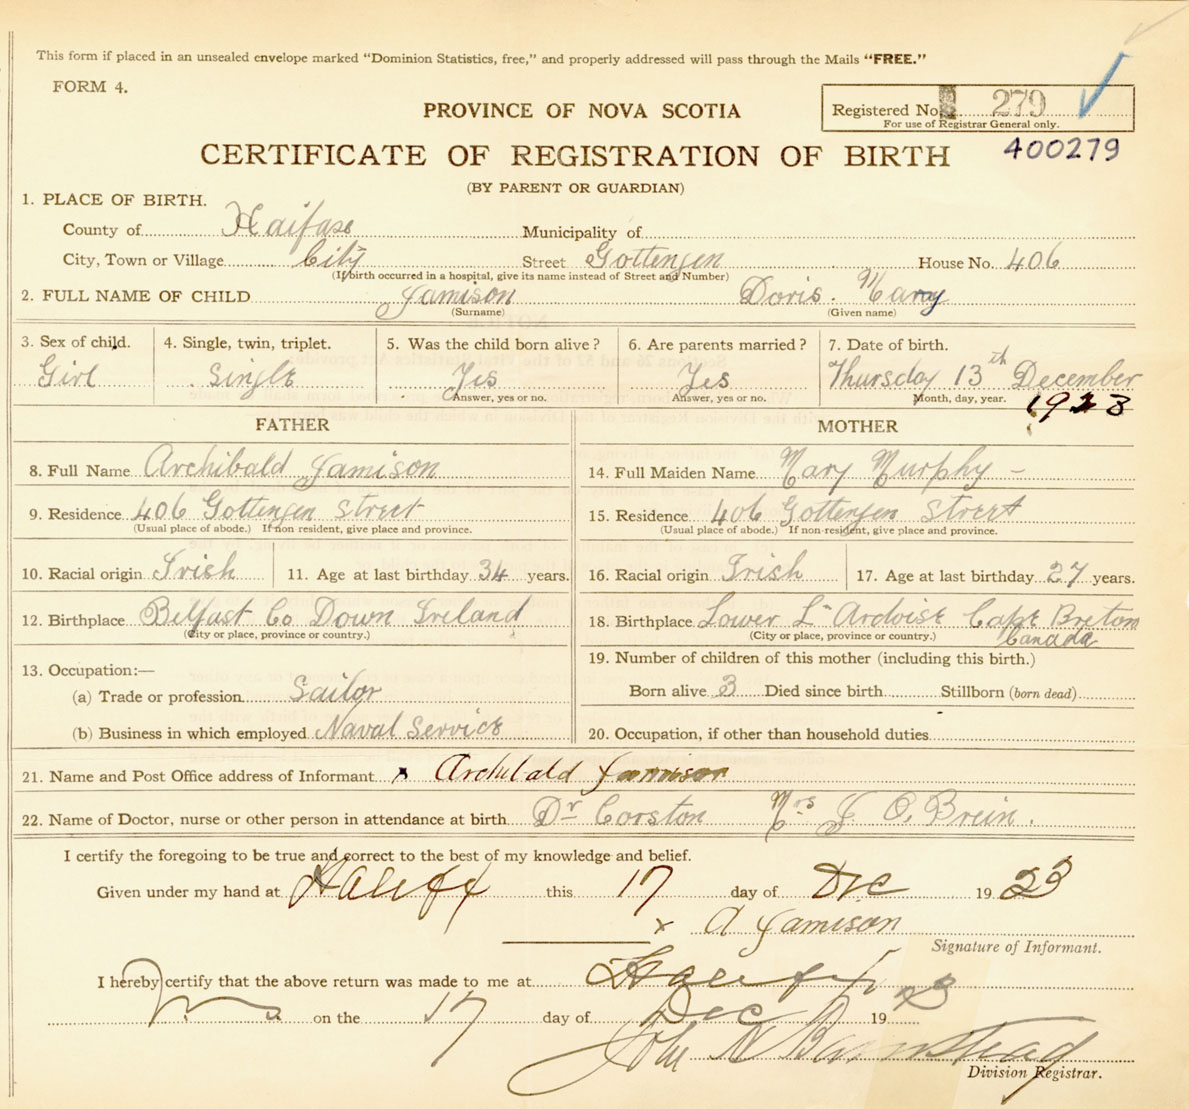 This form if placed in an unsealed envelope marked "Dominion Statistics, free," and properly addressed will pass through the Mails "FREE."
FORM 4.
PROVINCE OF NOVA SCOTIA
Registered No. 279
For use of Registrar General only.
CERTIFICATE OF REGISTRATION OF BIRTH 400279
(BY PARENT OR GUARDIAN)
1. PLACE OF BIRTH.
County of Haifax Municipality of
City, Town or Village City Street Gottengen House No. 406
(If birth occurred in a hospital, give its name instead of Street and Number)
2. FULL NAME OF CHILD Jamison Doris. Mary
(Surname) (Given name)
3. Sex of child. 4. Single, twin, triplet. 5. Was the child born alive? 6. Are parents married? 7. Date of birth.
Girl Single Yes Yes Thursday 13th December
Answer, yes or no. Answer, yes or no. Month, day, year. 1923
FATHER MOTHER
8. Full Name Archibald Jamison 14. Full Maiden Name Mary Murphy –
9. Residence 406 Gottengen Street 15. Residence 406 Gottengen Street
(Usual place of abode.) If non resident, give place and province. (Usual place of abode.) If non-resident, give place and province.
10. Racial origin Irish 11. Age at last birthday 34 years. 16. Racial origin Irish 17. Age at last birthday 27 years.
12. Birthplace Belfast Co Down Ireland 18. Birthplace Lower L'Ardoise Cape Breton
(City or place, province or country.) (City or place, province or country.) Canada
19. Number of children of this mother (including this birth.)
13. Occupation:—
(a) Trade or profession Sailor Born alive 3 Died since birth Stillborn (born dead)
(b) Business in which employed Naval Service 20. Occupation, if other than household duties
21. Name and Post Office address of Informant x Archibald Jamison
22. Name of Doctor, nurse or other person in attendance at birth Dr Corston Mrs J O. Brein.
I certify the foregoing to be true and correct to the best of my knowledge and belief.
Given under my hand at this 17 day of Dec 1923
x A Jamison
Signature of Informant.
I hereby certify that the above return was made to me at
on the 17 day of Dec 1923
John
Division Registrar.